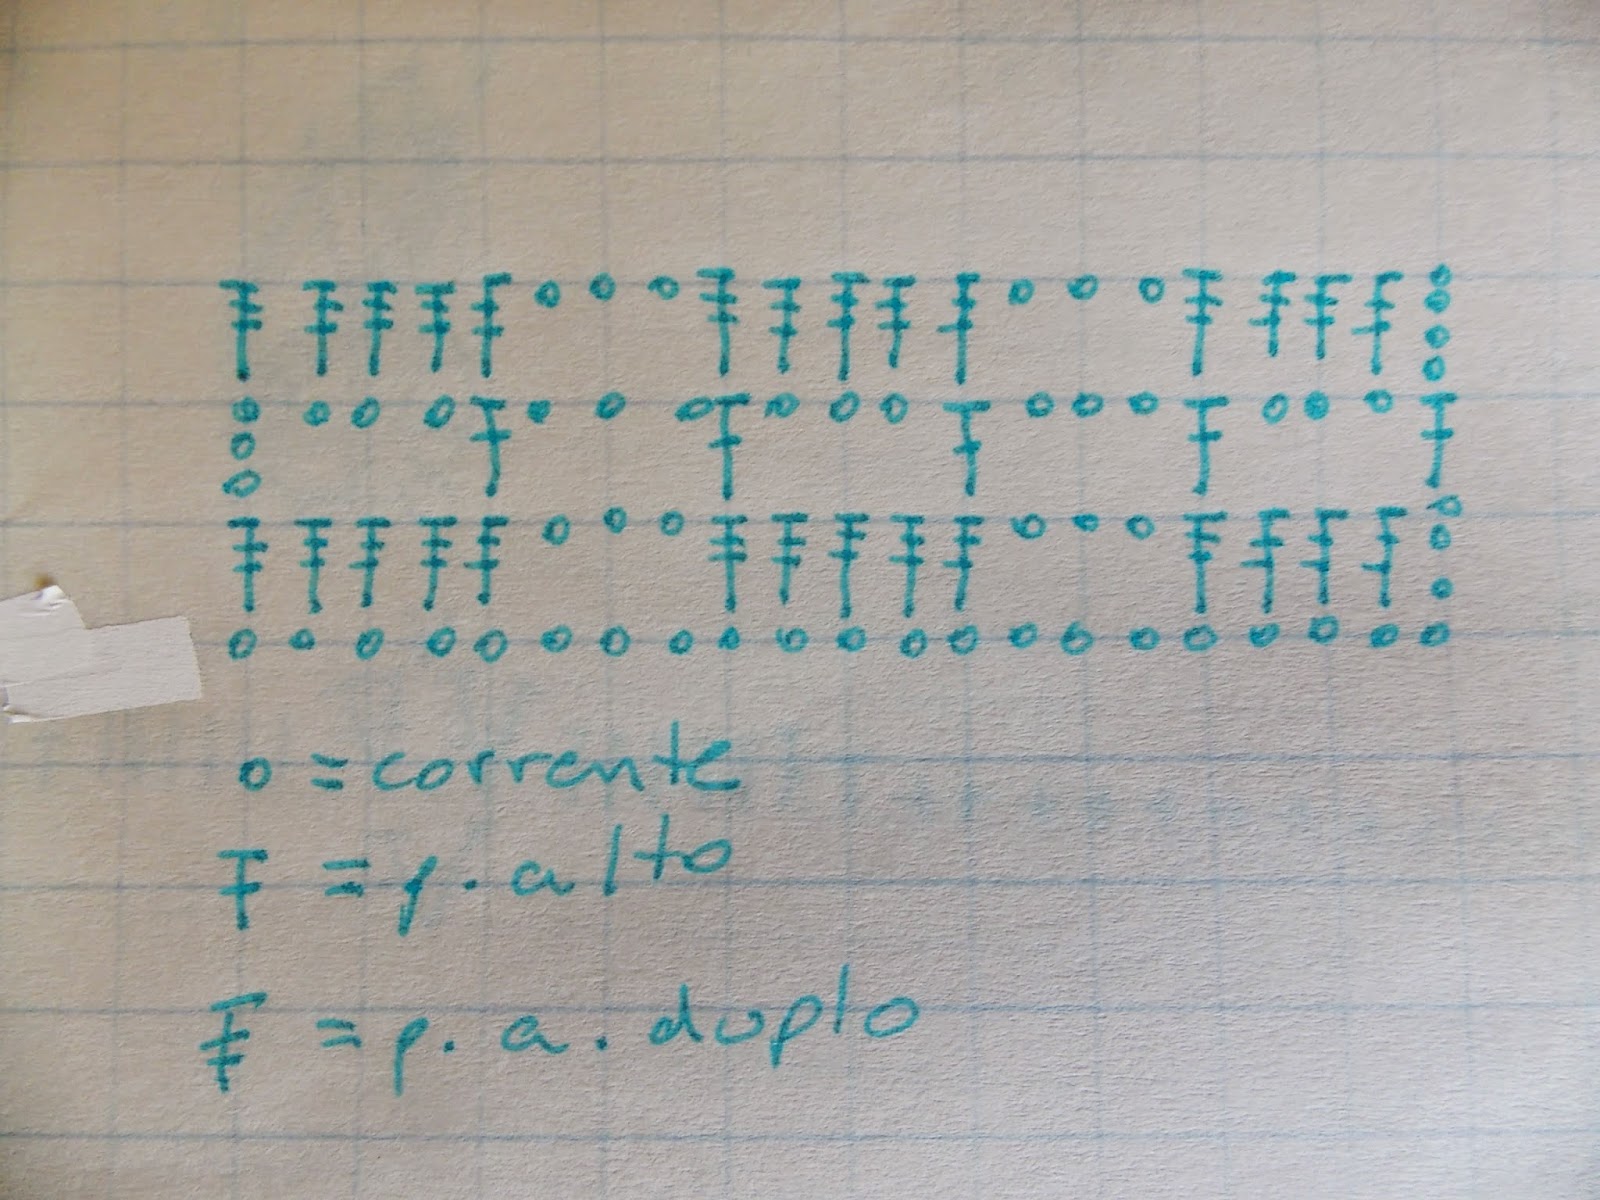 o = corrente
Ŧ = p. alto
= p. a. duplo